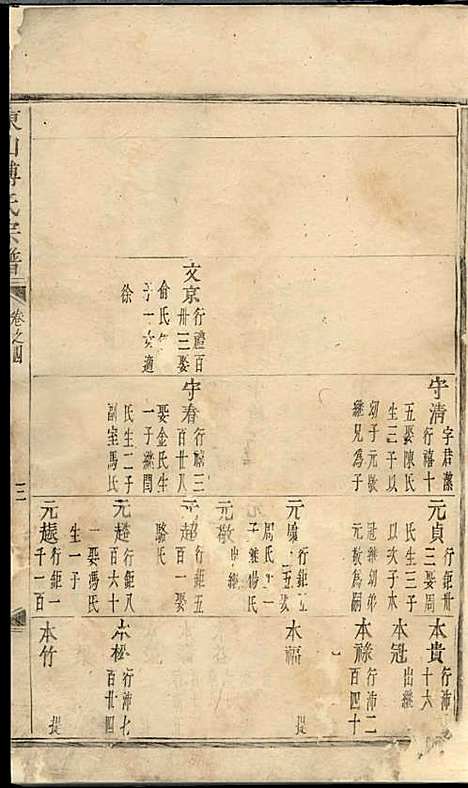 文京 行禮百
卅三娶
俞氏
一女適
徐
守清 字君潔
行禧十
五娶陳氏
生三子以
幼子元敬
繼兄爲子
守春 行禧三
百廿八
娶金氏生
一子繼閏
氏生二子
副室馮氏
元貞 行鉅卅
三娶周
氏生三子
以次子本
冠繼幼弟
元敬爲嗣
元 行鉅五
子繼楊氏
元敬 出繼
元超 行鉅五
百一娶
駱氏
元趨 行鉅八
百六十
一娶馮氏
生一子
元 行鉅一
千一百
本貴 行沛
十六
本冠 出繼
本祿 行沛二
百四十
本福
本松 行沛七
百廿四
本竹
東山傅氏宗譜
卷之四
三